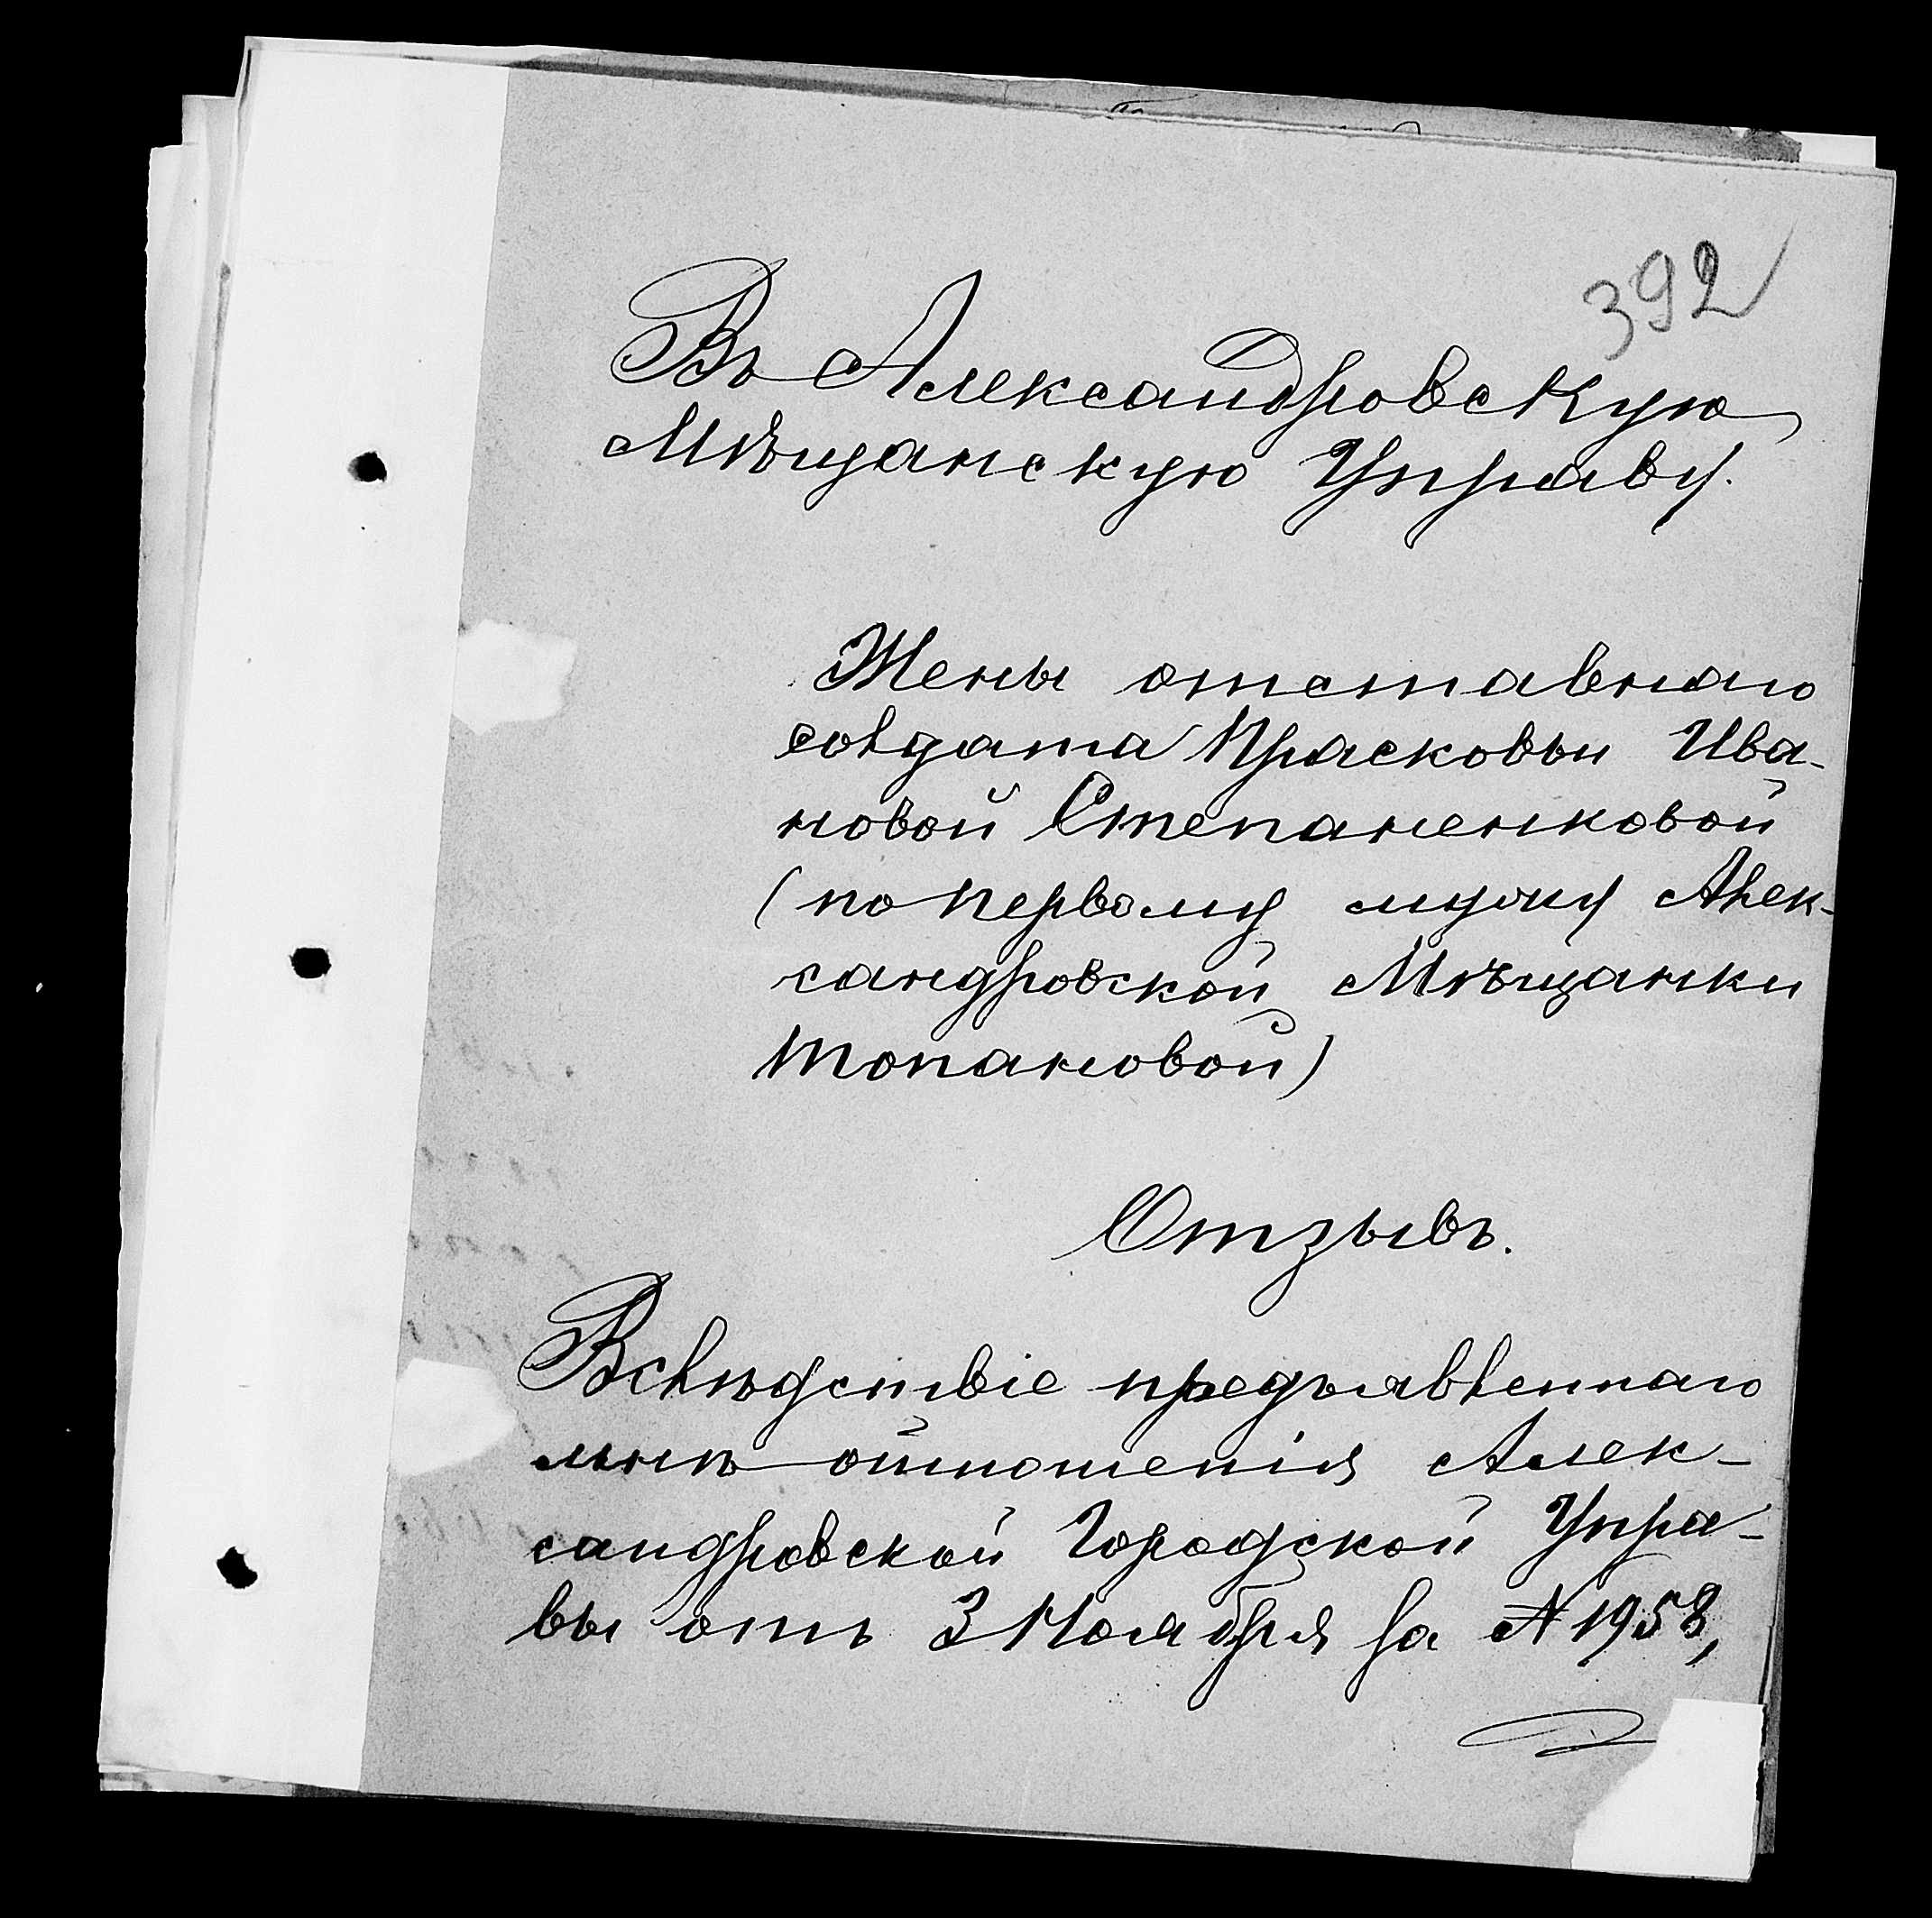 392
Въ Александровскую
Мѣщанскую Управу.
Жены отставнаго
солдата Прасковьи Ива-
новой Степаненковой
(по первому мужу Алек-
сандровской Мѣщанки
Топановой)
Отзывъ.
Вслѣдствіе предъявленнаго
мнѣ отношенія Алек-
сандровской Городской Упра-
вы отъ 3 Ноября за № 1958,